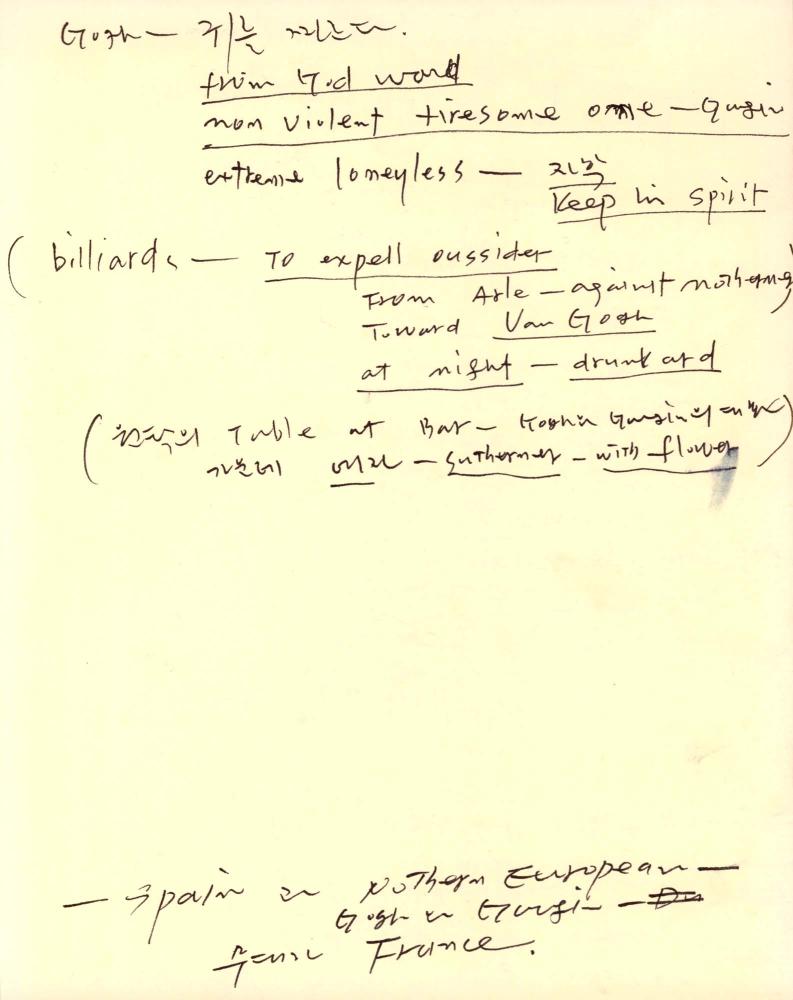 Gogh — 귀를 자른다.
from God word
non violent tiresome one — Gaugin
extreme loneyless — 지속
Keep in spirit
( billiards — To expell oussider
From Arle — against nothern )
Toward Van Gogh
at night — drunkard
( 원탁의 Table at Bar — Gogh와 Gaugin의 대화 )
가운데 여자 — Sutherner — with flower
— Spain 과 Nothern European —
Gogh 와 Gaugin —
무대가 France.